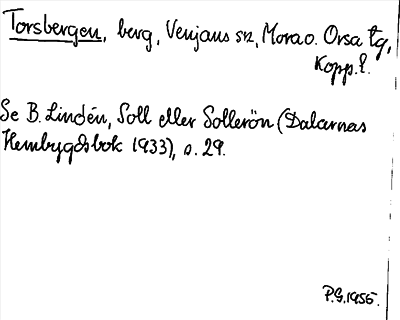 Torsbergen, berg, Venjans sn, Mora o. Orsa tg,
Kopp. l.
Se B. Lindén, Soll eller Sollerön (Dalarnas
Hembygdsbok 1933), s. 29.
P.G. 1955.